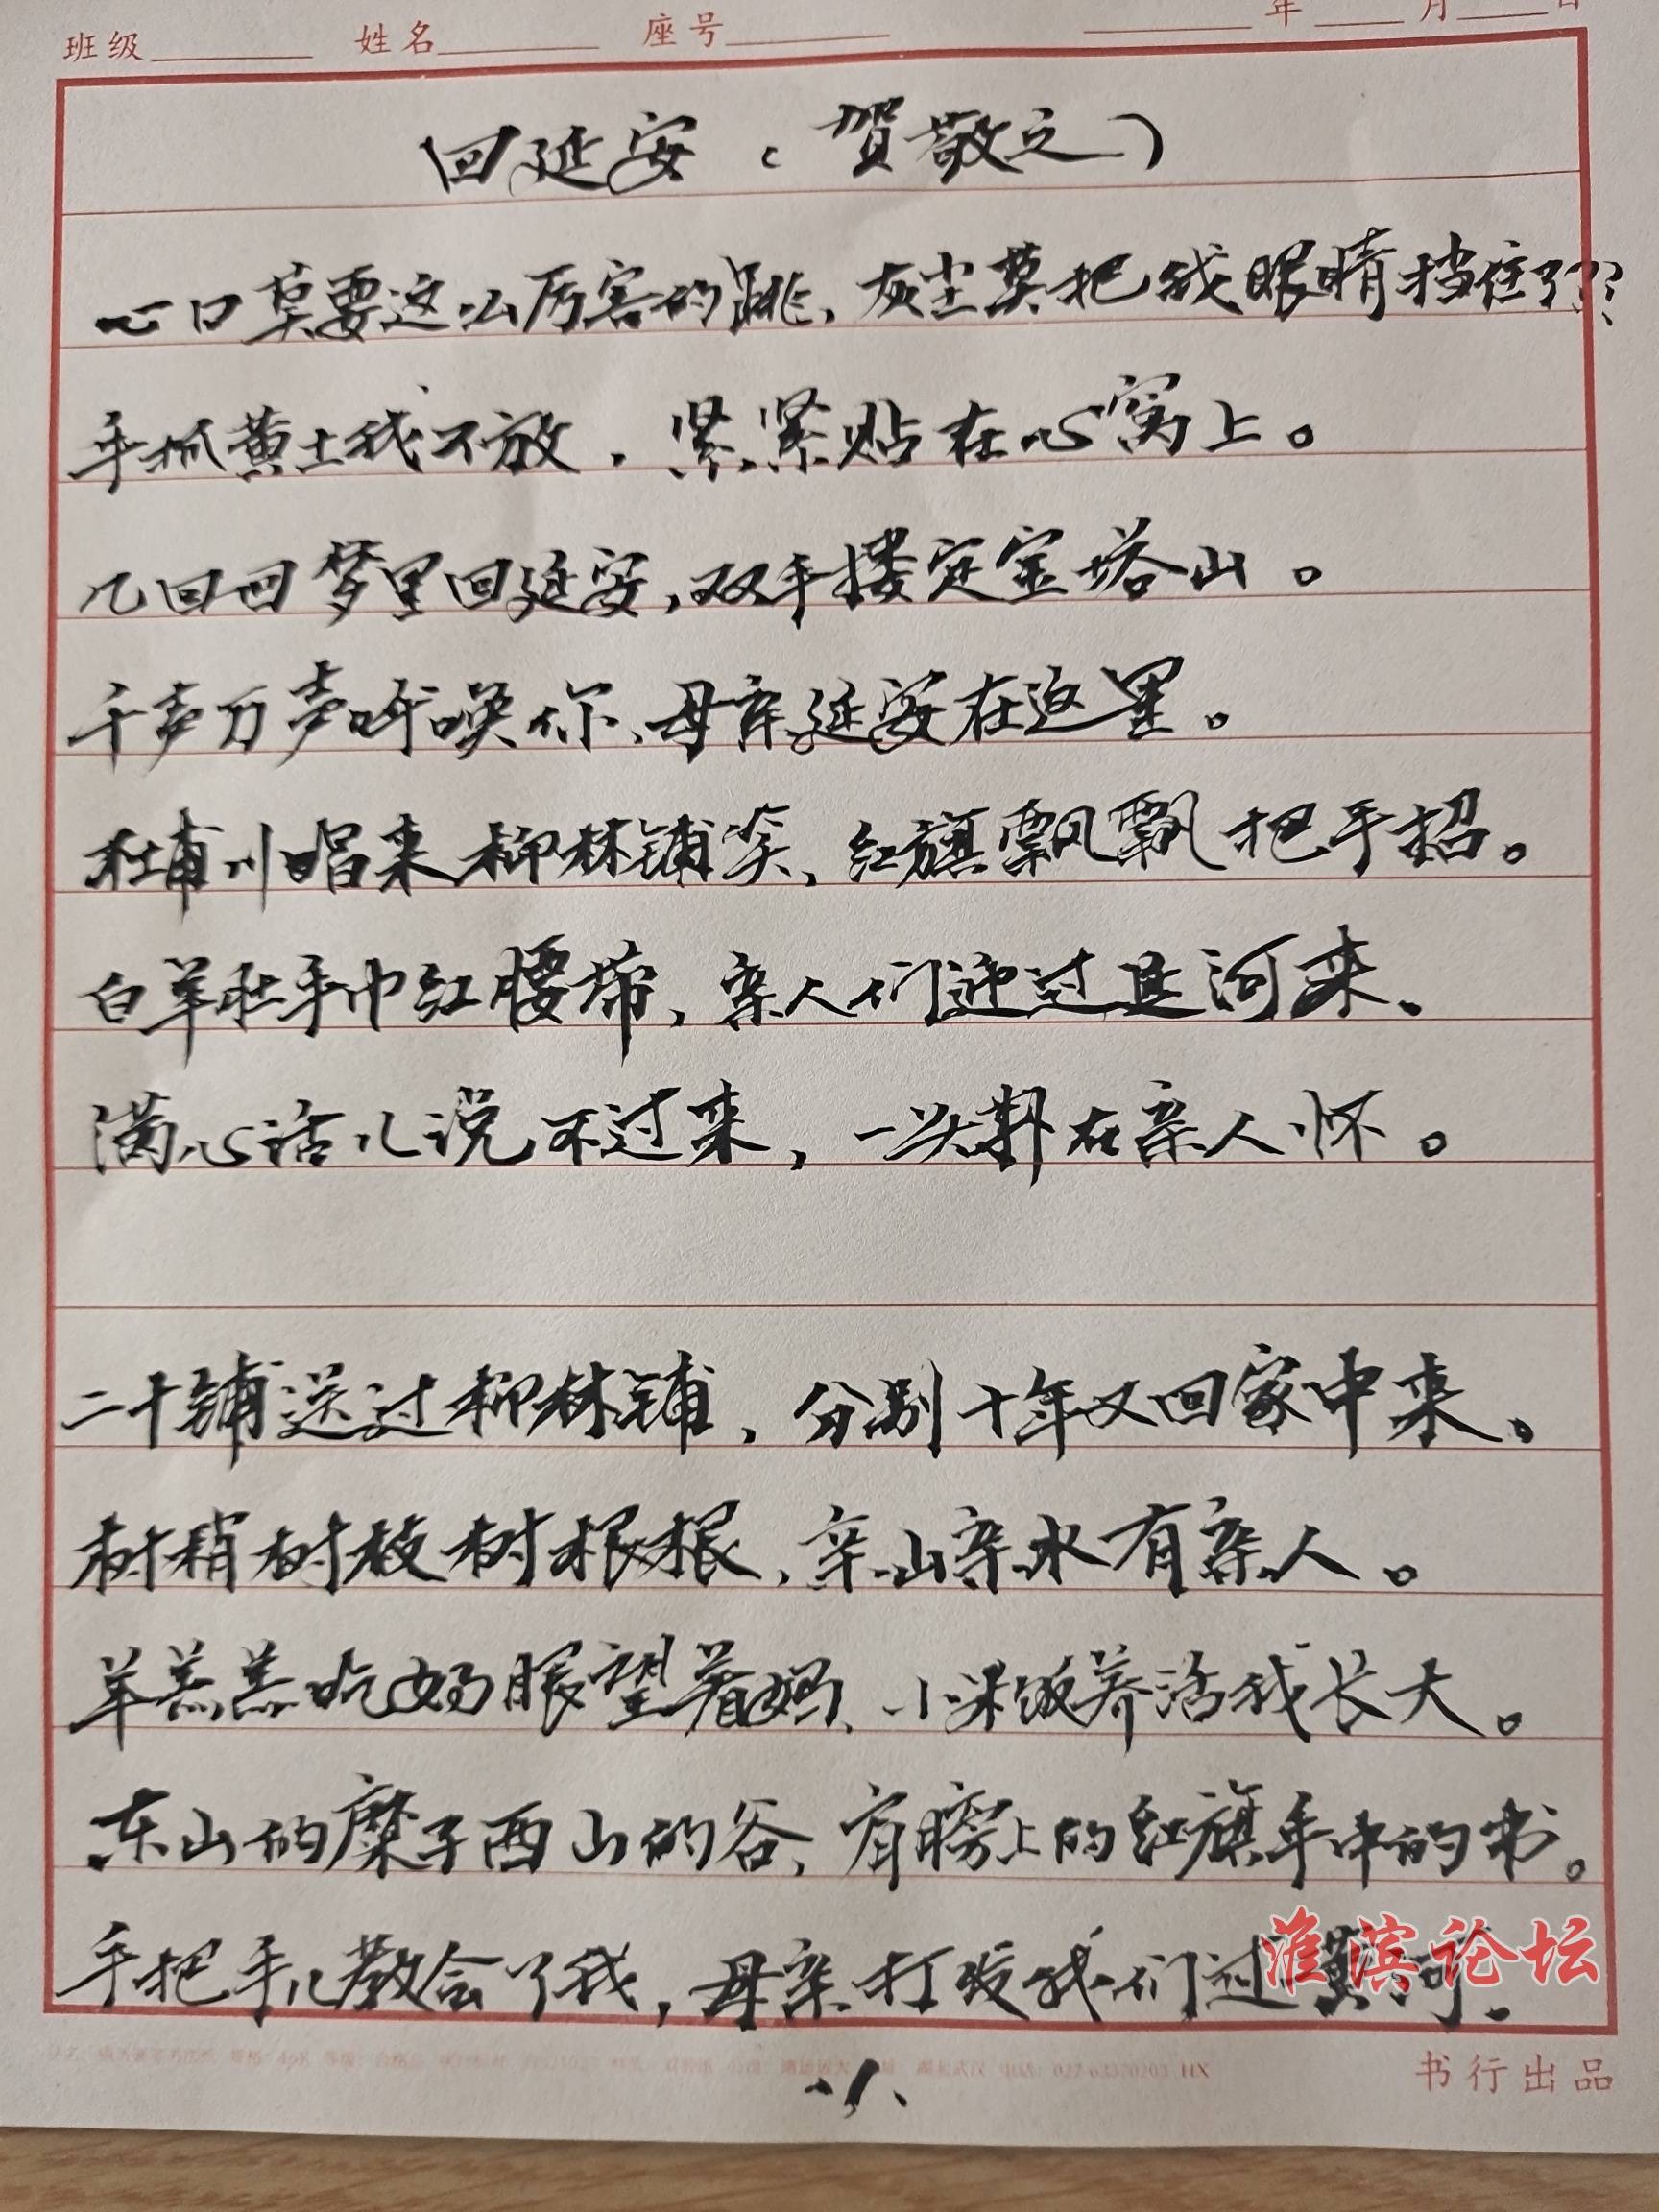 班级 姓名 座号 年 月 日
回延安（贺敬之）
心口莫要这么厉害的跳，灰尘莫把我眼睛挡住了??
手抓黄土我不放，紧紧贴在心窝上。
几回回梦里回延安，双手搂定宝塔山。
千声万声呼唤你、母亲延安在这里。
杜甫川唱来柳林铺笑，红旗飘飘把手招。
白羊肚手巾红腰带，亲人们迎过延河来。
满心话儿说不过来，一头扑在亲人怀。
二十铺送过柳林铺，分别十年又回家中来。
树稍树枝树根根，亲山亲水有亲人。
羊羔羔吃奶眼望着妈、小米饭养活我长大。
东山的糜子西山的谷，肩膀上的红旗手中的书。
手把手儿教会了我，母亲打发我们过黄河。
淮滨论坛
书行出品
·1·